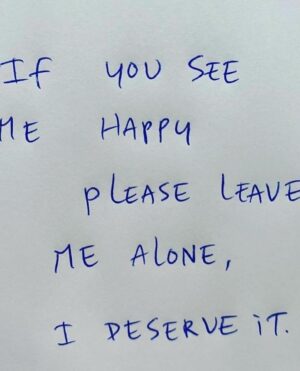 If you SEE
ME HAPPY
PLEASE LEAVE
ME ALONE,
I DESERVE iT.